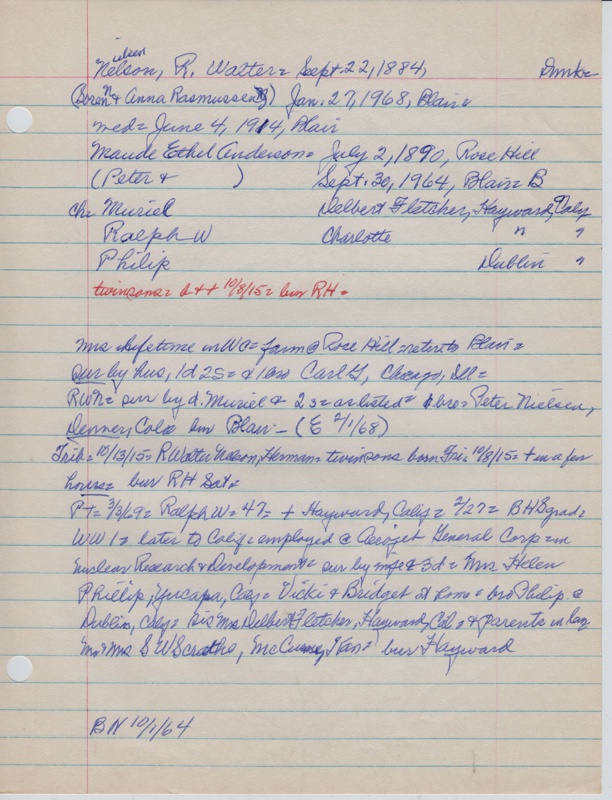 ielsen
Nelson, R. Walter = Sept. 22, 1884,
(Soren N & Anna Rasmussen) Jan. 27, 1968, Blair =
med = June 4, 1914, Blair
Maude Ethel Anderson = July 2, 1890, Rose Hill
(Peter & ) Sept. 30, 1964, Blair = B
ch = Muriel Delbert Fletcher, Hayward, Calif
Ralph W Charlotte " "
Philip Dublin "
twin sons = b + + 10/8/15 = bur RH =
Mrs lifetime in WC = farm @ Rose Hill = retire to Blair =
sur by hus, 1d 2s = & 1 bro Carl G, Chicago, Ill =
RWN = sur by d. Muriel & 2s = as listed = bro = Peter Nielsen,
Denver, Colo bur Blair - (E 2/1/68)
Trib = 10/13/15 = R Walter Nelson, Herman = twin sons born Fri = 10/8/15 = + in a few
hours = bur RH Sat =
PT = 3/3/69 = Ralph W = 47 = + Hayward, Calif = 2/27 = BHS grad =
WW 1 = later to Calif = employed @ Aerojet General Corp = in
Nuclear Research & Development = sur by wife & 3d = Mrs Helen
Phillip, Yucapa, Calif = Vicki & Bridget at home = bro Philip @
Dublin, Calif = sis Mrs Delbert Fletcher, Hayward, Cal = & parents in law
Mr & Mrs S W , Kan = bur Hayward
BN 10/1/64